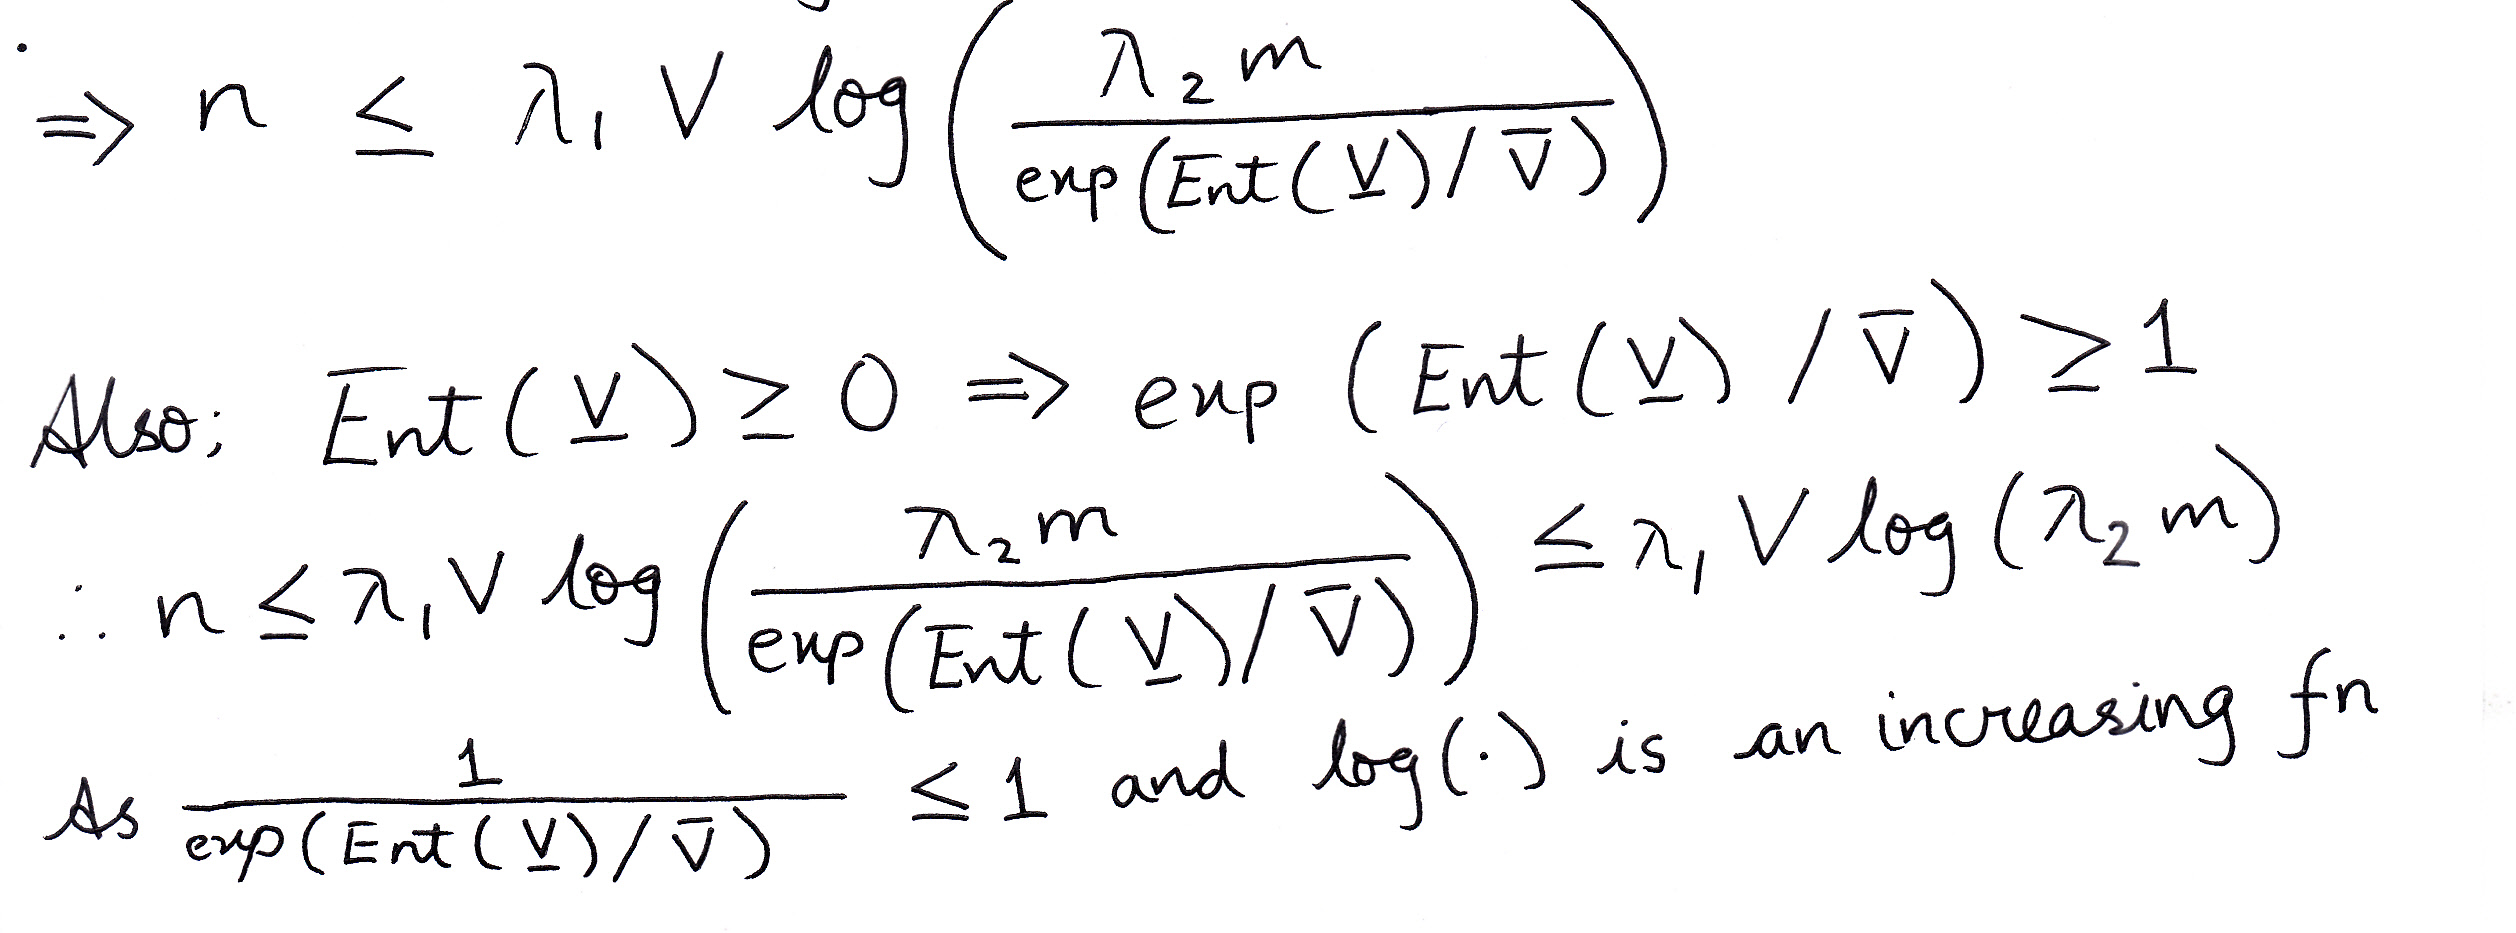 ⇒ n ≤ λ₁ V log ( λ₂ m / exp(Ent(V̲)/V̄) )
Also; Ent(V̲) ≥ 0 ⇒ exp (Ent(V̲) / V̄) ≥ 1
∴ n ≤ λ₁ V log ( λ₂ m / exp(Ent(V̲)/V̄) ) ≤ λ₁ V log (λ₂ m)
As 1 / exp(Ent(V̲)/V̄) ≤ 1 and log(·) is an increasing fn